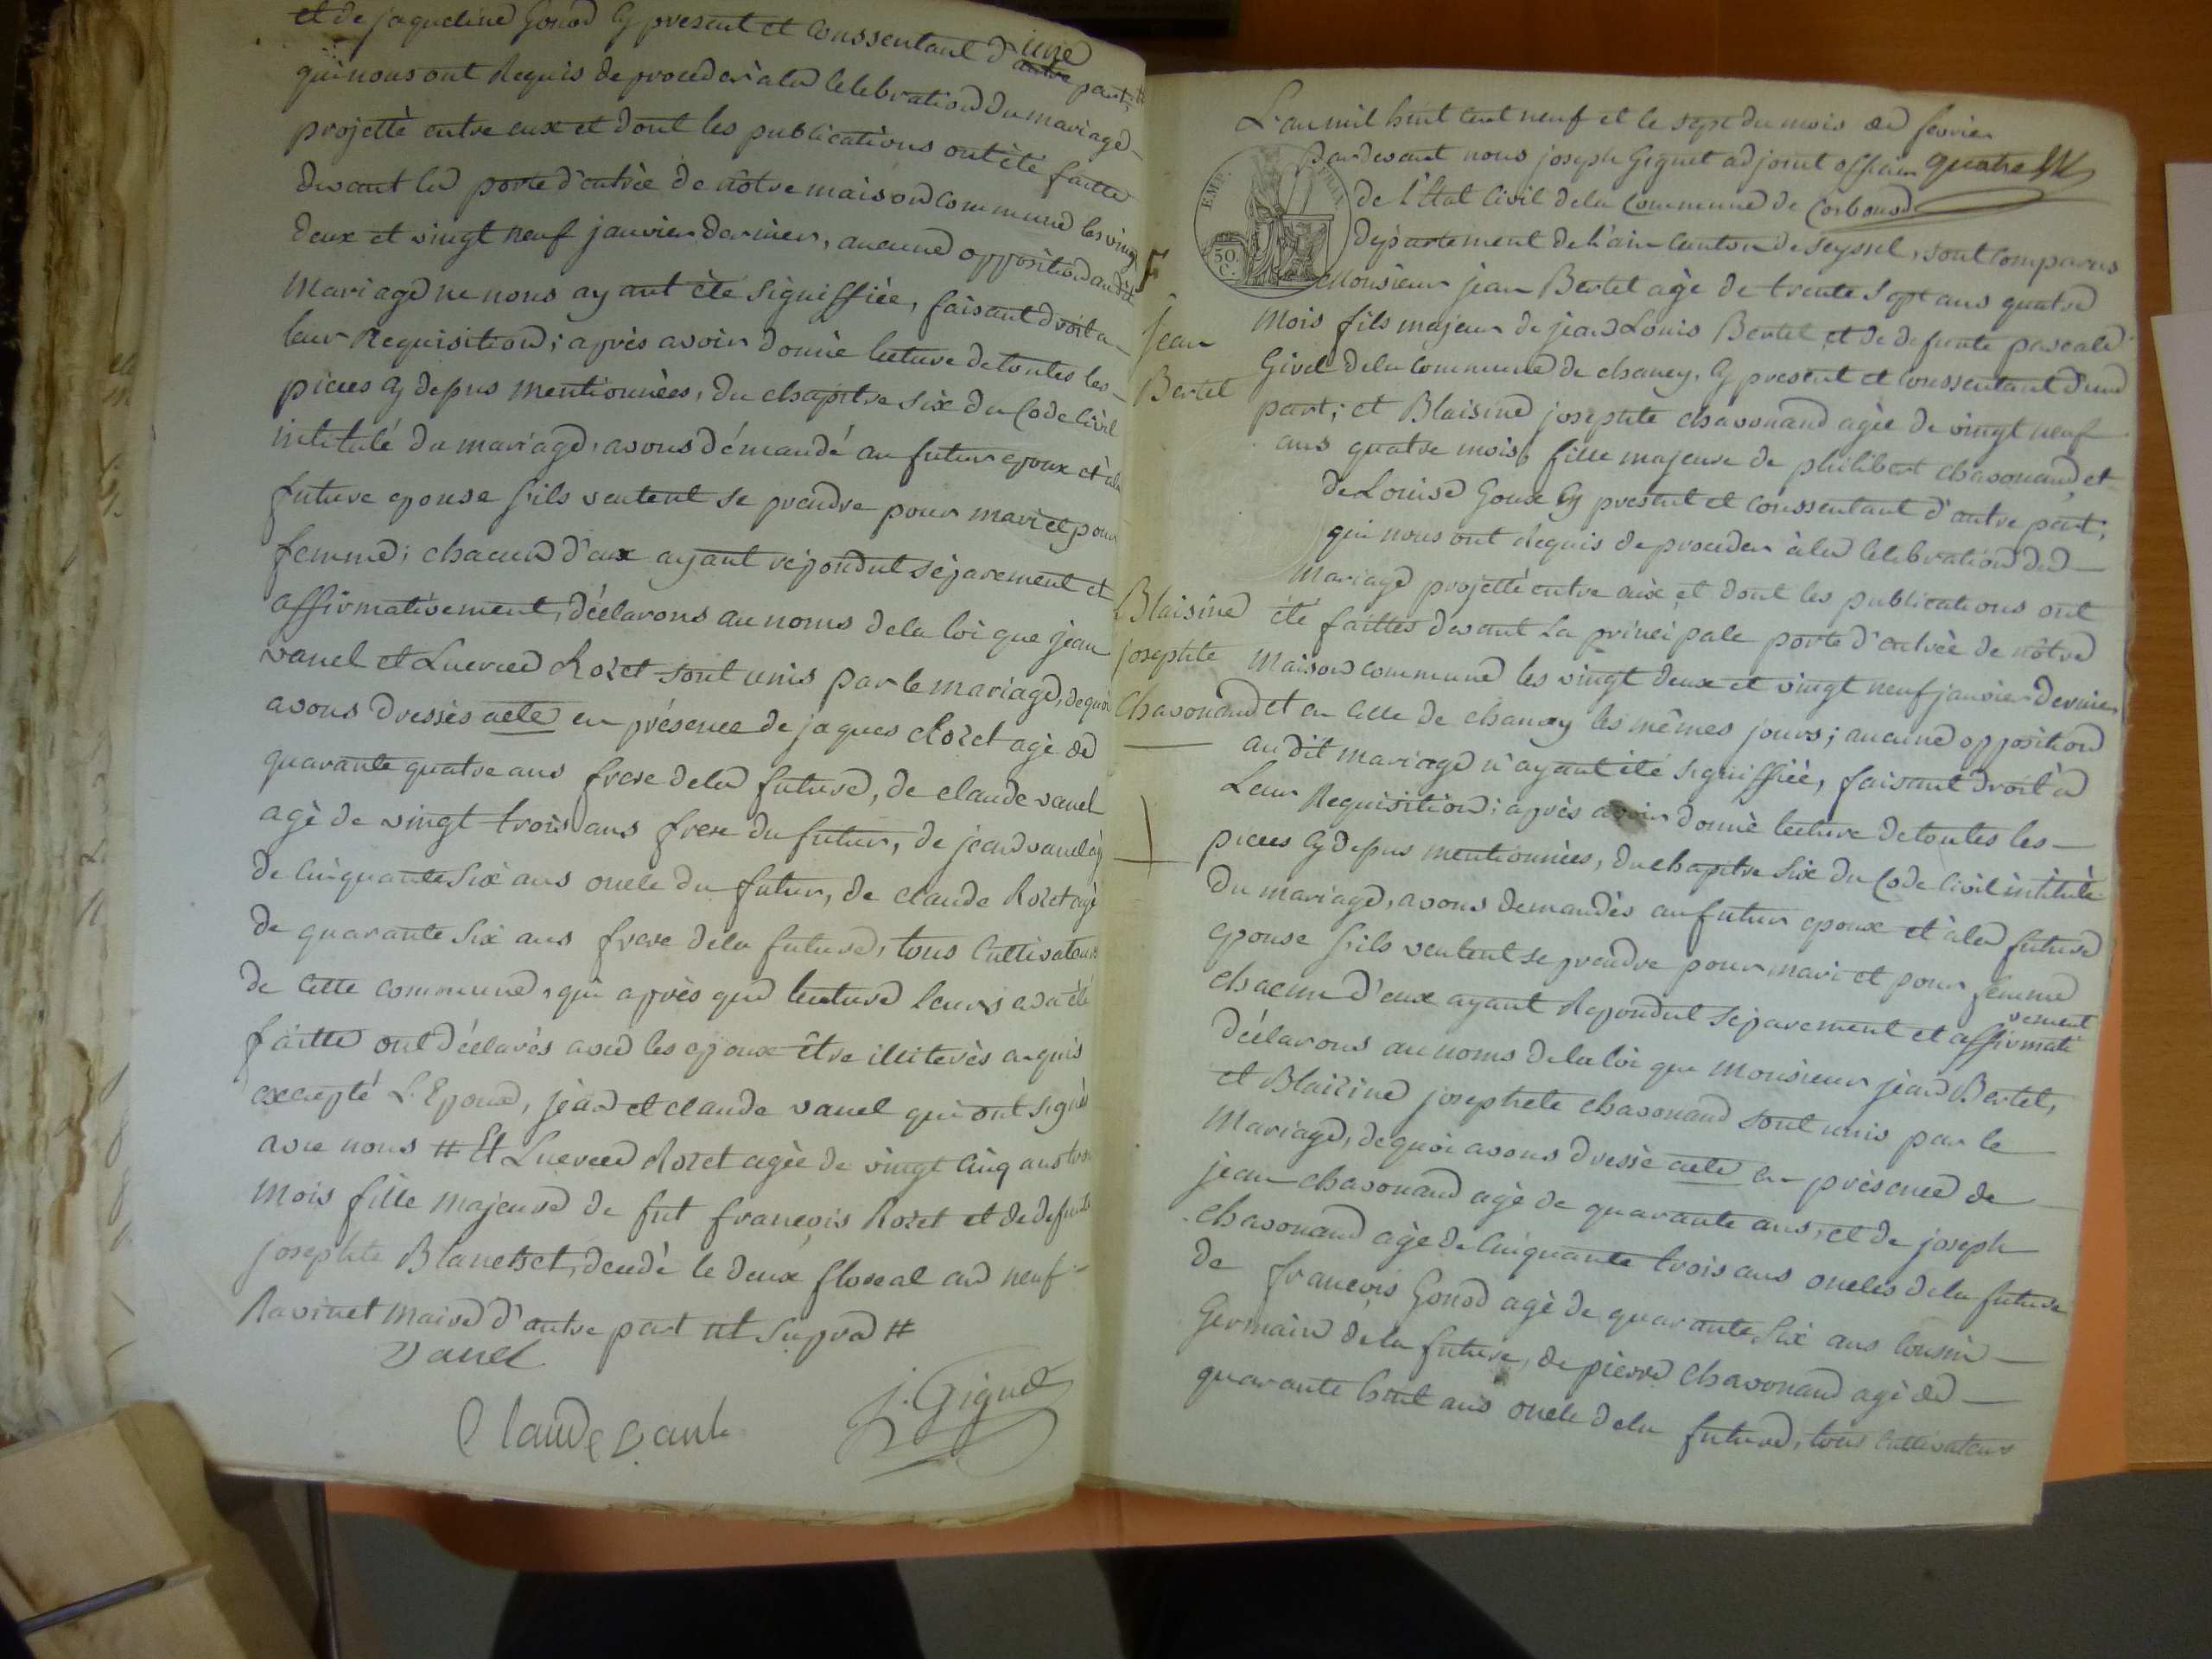 et de jaqueline Gonod cy present et conssentant d'une autre part;
qui nous ont Requis de proceder à la celebration du mariage
projetté entre eux et dont les publications ont été faitte
devant la porte d'entrèe de nôtre maison commune les vingt
deux et vingt neuf janvier dernier, aucune opposition audit
mariage ne nous ayant ète signiffièe, faisant droit a
leur Requisition; après avoir donnè lecture de toutes les
pieces cy depus mentionnèes, du chapitre six du Code Civil
intitulé du mariage, avons démandé au futur epoux et à la
future epouse s'ils veulent se prendre pour mari et pour
femme; chacun d'eux ayant repondut sèparement et
affirmativement, déclarons au noms de la loi que jean
vanel et Lucrece Rozet sont unis par le mariage, de quoi
avons dressès acte en présence de jaques Rozet agè de
quarante quatre ans frere de la future, de claude vanel
agè de vingt trois ans frere du futur, de jean vanel agè
de cinquante six ans oncle du futur, de claude Rozet agè
de quarante six ans frere de la future, tous cultivateurs
de cette commune, qui après que lecture leurs en a èté
faitte ont déclarès avec les epoux être illiterès enquis
excepté L'Epoux, jean et claude vanel qui ont signès
avec nous # Et Lucrece Rozet agèe de vingt cinq ans trois
mois fille majeure de fut françois Rozet et de defunte
josephte Blanchet, decedé le deux floreal an neuf
Ravinet maire d'autre part ut supra #
vanel
Claude vanel
J. Giguet
L'an mil huit cent neuf et le sept du mois de fevrier
quatre
par devant nous joseph Giguet adjoint officier
de l'état Civil de la Commune de Corbonod
EMP. FRAN.
50. C.
département de l'ain canton de seyssel, sont comparus
Monsieur jean Bertet agè de trente sept ans quatre
5
Jean
Bertet
mois fils majeur de jean Louis Bertet et de defunte pascale
Givel de la commune de chanay, cy present et conssentant d'une
part; et Blaisine josephte chavonand agèe de vingt neuf
ans quatre mois, fille majeure de philibert chavonand, et
de Louise Goux cy present et conssentant d'autre part;
qui nous ont Requis de proceder à la celebration du
mariage projetté entre aux et dont les publications ont
Blaisine
josephte
Chavonand
été faittes devant la principale porte d'entrèe de nôtre
maison commune les vingt deux et vingt neuf janvier dernier
et en celle de chanay les mêmes jours; aucune opposition
au dit mariage n'ayant été signiffièe, faisant droit à
Leur Requisition; après avoir donnè lecture de toutes les
pieces cy depus mentionnèes, du chapitre six du Code Civil intitulè
du mariage, avons demandès au futur epoux et à la future
epouse s'ils veulent se prendre pour mari et pour femme
chacun d'eux ayant Repondut sèparement et affirmativement
déclarons au noms de la loi que monsieur jean Bertet,
et Blaizine josephete chavonand sont unis par le
mariage, de quoi avons dressè acte en prèsence de
jean chavonand agè de quarante ans, et de joseph
chavonand agè de cinquante trois ans oncles de la future
de françois Gonod agè de quarante six ans cousin
germain de la future, de pierre chavonand agè de
quarante huit ans oncle de la future, tous cultivateurs